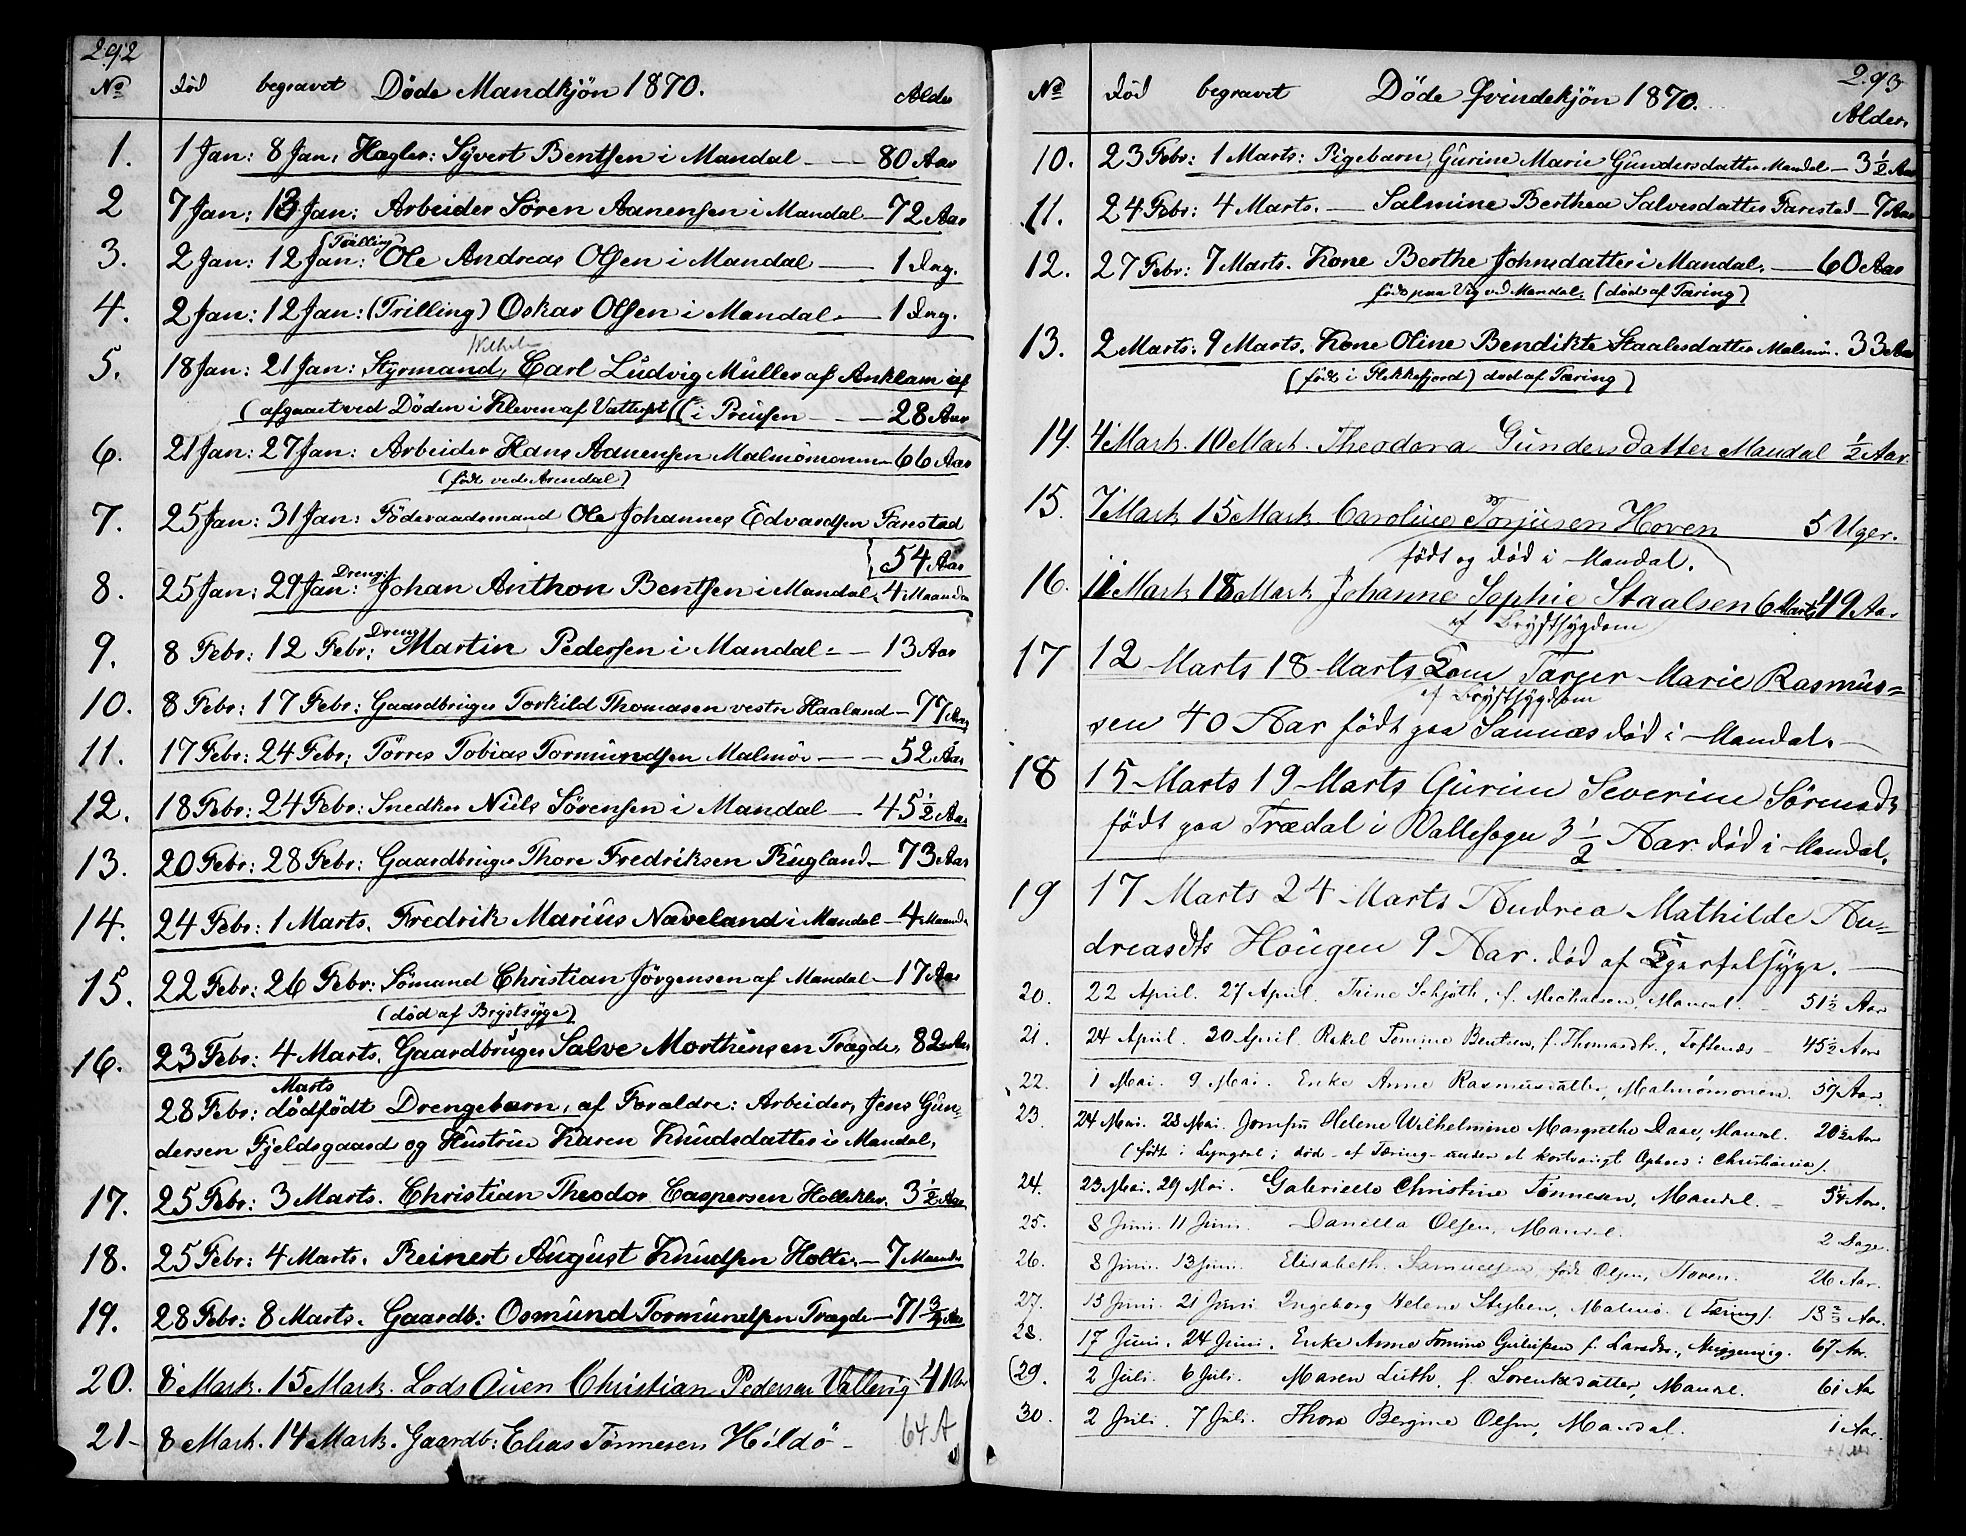 292
No død begravet Døde Mandkjön 1870. Alder
1. 1 Jan: 8 Jan: Hegler: Syvert Bentsen i Mandal — 80 Aar
2 7 Jan: 13 Jan: Arbeider Sören Aanensen i Mandal — 72 Aar
3. 2 Jan: 12 Jan: (Trilling) Ole Andreas Olsen i Mandal — 1 Dag.
4. 2 Jan: 12 Jan: (Trilling) Oskar Olsen i Mandal — 1 Dag.
Wilhelm
5. 18 Jan: 21 Jan: Styrmand, Carl Ludvig Müller af Anklam
(afgaaet ved Döden i Kleven af i Preusen — 28 Aar
6. 21 Jan: 27 Jan: Arbeider Hans Aanensen Malmömonen 66 Aar
(født ved Arendal)
7. 25 Jan: 31 Jan: Föderaadsmand Ole Johannes Edvardsen Farestad
54 Aar
8. 25 Jan: 29 Jan: Dreng: Johan Anthon Bentsen i Mandal, 4 Maaneder
9. 8 Febr: 12 Febr: Dreng Martin Pedersen i Mandal — 13 Aar
10. 8 Febr: 17 Febr: Gaardbruger Torkild Thomasen vestre Haaland — 77 Aar
11. 17 Febr: 24 Febr: Törres Tobias Tormundsen Malmö — 52 Aar
12. 18 Febr: 24 Febr: Snedker Niels Sörensen i Mandal — 45 1/2 Aar
13. 20 Febr: 28 Febr: Gaardbruger Thore Fredriksen Rugland — 73 Aar
14. 24 Febr: 1 Marts. Fredrik Marius Naveland i Mandal — 4 Maander
15. 22 Febr: 26 Febr: Sömand Christian Jörgensen af Mandal — 17 Aar
(død af Brystsyge)
16. 23 Febr: 4 Marts. Gaardbruger Salve Morthensen Trægde, 82 Aar
Marts
28 Febr: dødfödt Drengebarn, af Foraldre: Arbeider, Jens Gun=
dersen Fjeldsgaard og Hustrue Karen Knudsdatter i Mandal,
17. 25 Febr: 3 Marts. Christian Theodor Caspersen 3 1/2 Aar
18. 25 Febr: 4 Marts. Reinert August Knudsen Holte — 7 Maander
19. 28 Febr: 8 Marts. Gaardb: Osmund Tormundsen Trægde — 71 3/4 Aar
20. 8 Mark. 15 Mark. Lods Auen Christian Pedersen 41 Aar
21 8 Mark. 14 Mark. Gaardb: Elias Tönnesen Hildö — 64 A
293
No død begravet Døde Qvindekjön 1870. Alder.
10. 23 Febr: 1 Marts: Pigebarn, Gurine Marie Gundersdatter Mandal — 3 1/2 Aar
11. 24 Febr: 4 Marts. — Salmine Berthea Salvesdatter Farestad — 7 Aar
12. 27 Febr: 7 Marts. Kone Berthe Johnsdatter i Mandal. — 60 Aar
født paa Vig ved Mandal. (død af Tæring)
13. 2 Marts. 9 Marts. Kone Oline Bendikte Staalesdatter Malmö. 33 Aar
(født i Flekkefjord) død af Tæring)
14. 4 Mark. 10 Mark. Theodora Gundersdatter Mandal 1/2 Aar
15. 7 Mark 15 Mark Caroline Torjusen Hoven 5 Uger.
født og død i Mandal.
16. 11 Mark 18 Mark Johanne Sophie Staalsen 49 Aar
af Brystsygdom
17 12 Marts 18 Marts Marie Rasmus=
af Brystsygdom
sen 40 Aar født paa Sannæs død i Mandal.
18 15 Marts 19 Marts Gurine Severine
født paa Trædal i Vallesogn 3 1/2 Aar død i Mandal.
19 17 Marts 24 Marts Andrea Mathilde An=
dreasdtr Hougen 9 Aar. død af
20. 22 April. 27 April. Trine Schjöth, f. Michalsen, Mandal. 51 1/2 Aar
21. 24 April. 30 April. Rakel Tomine Bentsen, f. Thomasdtr., Toftenæs — 45 1/2 Aar
22. 1 Mai. 9 Mai. Enke Anne Rasmusdatter, Malmömonen. 59 Aar.
23. 24 Mai. 28 Mai. Jomfru Helene Wilhelmine Margrethe Daae, Mandal. 20 1/2 Aar
(født i Lyngdal; død af Tæring under et kortvarigt Ophold i Christiania).
24. 23 Mai. 29 Mai. Gabrielle Christine Tönnesen, Mandal. Aar.
25. 8 Juni. 11 Juni. Daniella Olsen, Mandal. 2 Dage.
26. 8 Juni. 13 Juni. Elisabeth Samuelsen, født Olsen, Hoven. 26 Aar.
27. 13 Juni. 21 Juni. Ingeborg Helene Styhen, Malmö. (Tæring). Aar.
28. 17 Juni. 24 Juni. Enke Anne Tomine f. Larsdtr., 67 Aar.
(29. 2 Juli. 6 Juli. Maren Luth, f. Lorentsdatter, Mandal. 61 Aar
30. 2 Juli. 7 Juli. Thora Bergine Olsen, Mandal. 1 Aar.